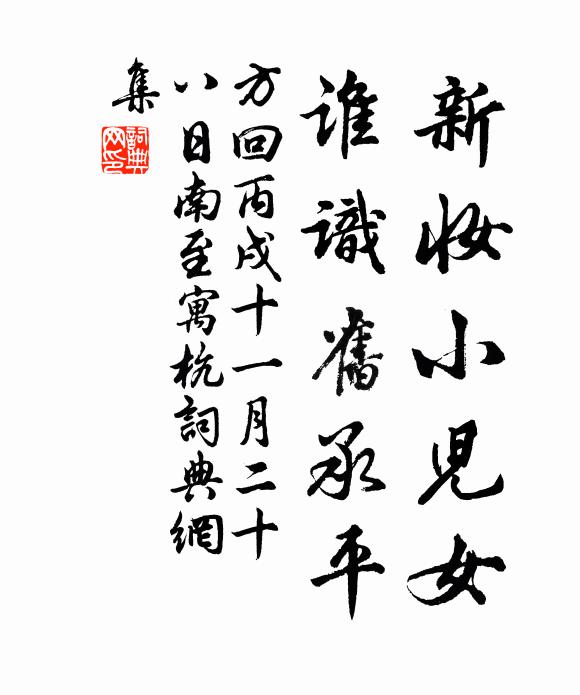 新妝小児女
誰識舊承平
方回丙戌十一月二十
八日南至寓杭詞典網
集
詞典
网印